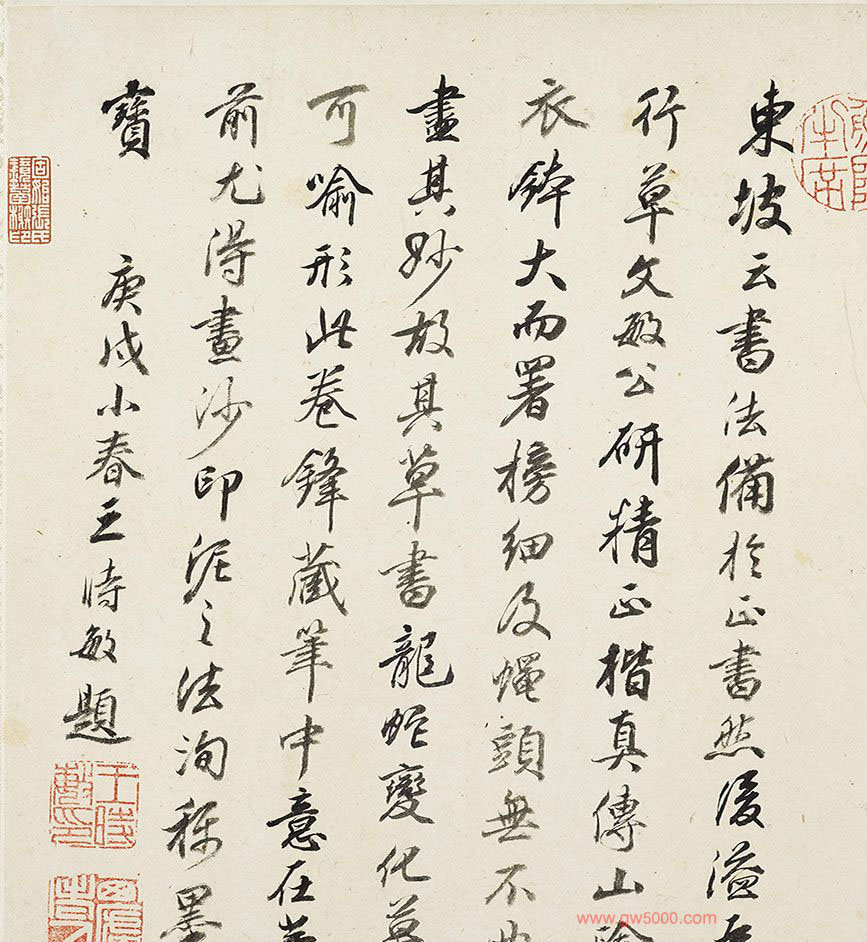 東坡云書法備於正書然後溢
行草文敏公研精正楷真傳山陰
衣鉢大而署榜細及蠅頭無不曲
盡其妙故其草書龍蛇變化莫
可喻形此卷鋒藏筆中意在筆
前尤得畫沙印泥之法洵稱墨
寶
庚戌小春王時敏題
王時敏印
www.gw5000.com